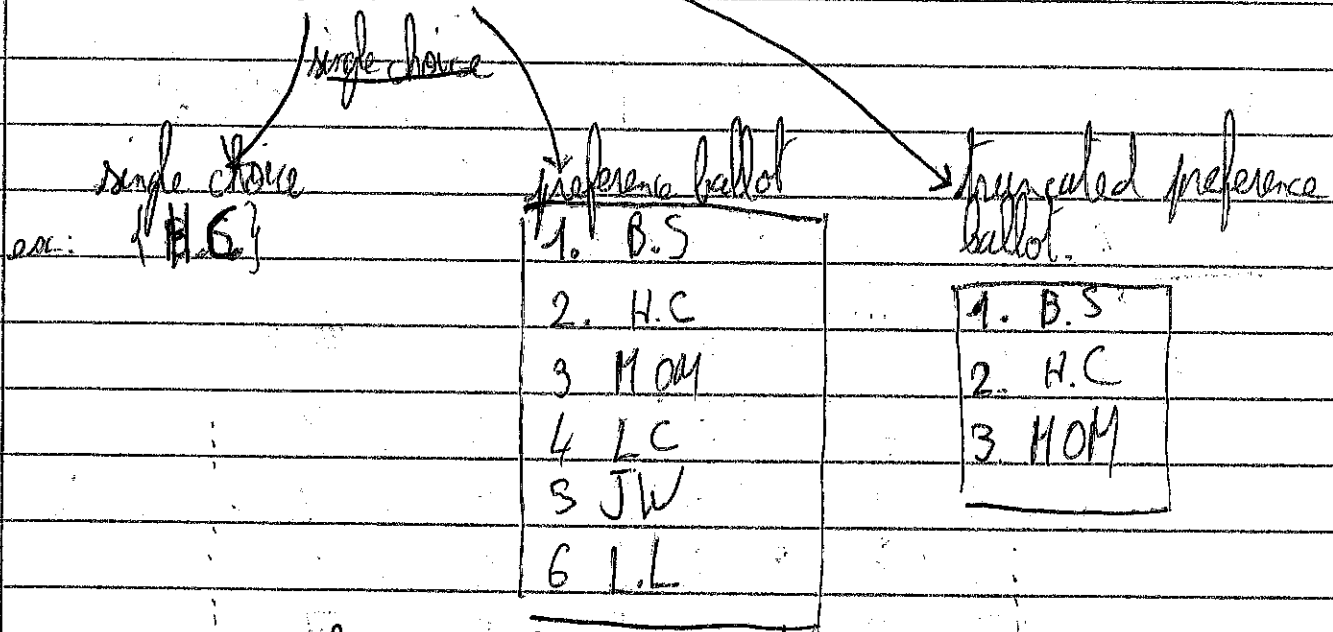 single choice
single choice
ex: {H.C}
preference ballot
1. B.S
2. H.C
3 MOM
4 LC
5 JW
6 L.L
truncated preference
ballot.
1. B.S
2. H.C
3 MOM